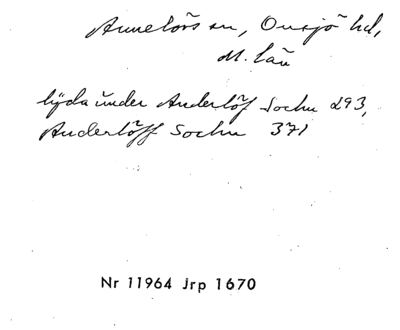 Annelövs sn, Onsjö hd,
M. län
lyda under Anderlöf Sochn 293,
Anderlöff Sochn 371
Nr 11964 Jrp 1670